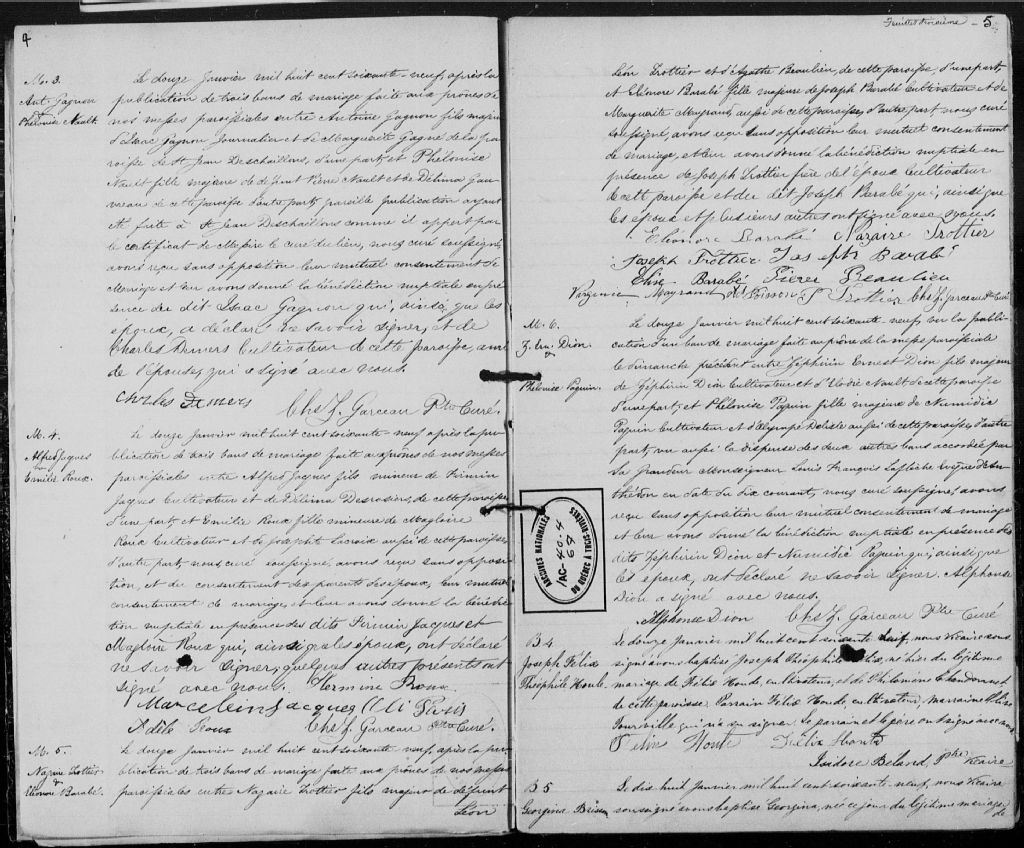 4
M. 3.
Ant. Gagnon
&
Phélonise Nault
Le douze Janvier mil huit cent soixante-neuf, après la
publication de trois bans de mariage faite aux prônes de
nos messes paroissiales entre Antoine Gagnon fils majeur
d'Isaac Gagnon Journalier et de Marguerite Gagné de la pa-
roisse de St Jean Deschaillons, d'une part, et Phélonise
Nault fille majeure de défunt Pierre Nault et de Délima Gau-
vreau de cette paroisse d'autre part, pareille publication ayant
été faite à St Jean Deschaillons comme il appert par
le certificat de Messire le curé du lieu, nous curé soussigné,
avons reçu sans opposition leur mutuel consentement de
Mariage et leur avons donné la bénédiction nuptiale en pré-
sence du dit Isaac Gagnon qui, ainsi que les
époux, a déclaré ne savoir signer, et de
Charles Demers Cultivateur de cette paroisse, ami
de l'épouse, qui a signé avec nous.
Charles Demers Chs Z. Garceau Ptre Curé.
M. 4.
Alfred Jacques
&
Emélie Roux.
Le douze Janvier mil huit cent soixante-neuf après la pu-
blication de trois bans de mariage faite aux prônes de nos messes
paroissiales entre Alfred Jacques fils mineur de Firmin
Jacques Cultivateur et de Délima Desrosiers, de cette paroisse,
d'une part, et Emélie Roux fille mineure de Magloire
Roux Cultivateur et de Josephte Lacroix aussi de cette paroisse,
d'autre part, nous curé soussigné, avons reçu sans opposi-
tion, et du consentement des parents des époux, leur mutuel
consentement de mariage, et leur avons donné la bénédic-
tion nuptiale en présence des dits Firmin Jacques et
Magloire Roux qui, ainsi que les époux, ont déclaré
ne savoir signer, quelques autres présents ont
signé avec nous. Hermine Roux
Marcelin Jacques
Adèle Roux Chs Z. Garceau Ptre Curé.
M. 5.
Nazaire Trottier
&
Eléonore Barabé.
Le douze Janvier mil huit cent soixante-neuf, après la pu-
blication de trois bans de mariage faite aux prônes de nos messes
paroissiales entre Nazaire Trottier fils majeur de défunt
Léon
Feuillet troisième - 5
Léon Trottier et d'Agathe Beaulieu, de cette paroisse, d'une part,
et Eléonore Barabé fille majeure de Joseph Barabé Cultivateur et de
Marguerite Mayrand, aussi de cette paroisse, d'autre part, nous curé
soussigné, avons reçu sans opposition leur mutuel consentement
de mariage, et leur avons donné la bénédiction nuptiale en
présence de Joseph Trottier frère de l'époux Cultivateur
de cette paroisse et du dit Joseph Barabé qui, ainsi que
les époux et plusieurs autres ont signé avec nous.
Eléonore Barabé Nazaire Trottier
Joseph Trottier Joseph Barabé
Elise Barabé Pierre Beaulieu
Virginie Mayrand Trottier Chs Z. Garceau Ptre Curé
M. 6.
Z. Ern. Dion
&
Phélonise Paquin.
Le douze Janvier mil huit cent soixante-neuf, vu la publi-
cation d'un ban de mariage faite au prône de la messe paroissiale
le dimanche précédent entre Zéphirin Ernest Dion fils majeur
de Zéphirin Dion Cultivateur et d'Elodie Nault de cette paroisse
d'une part, et Phélonise Paquin fille majeure de Numidie
Paquin Cultivateur et d' Delisle aussi de cette paroisse d'autre
part, vu aussi la dispense des deux autres bans accordée par
Sa grandeur Monseigneur Louis François Laflèche Evêque d'An-
thédon en date du dix courant, nous curé soussigné, avons
reçu sans opposition leur mutuel consentement de mariage
et leur avons donné la bénédiction nuptiale en présence des
dits Zéphirin Dion et Numidie Paquin qui, ainsi que
les époux, ont déclaré ne savoir signer. Alphonse
Dion a signé avec nous.
Alphonse Dion Chs Z. Garceau Ptre Curé
B 4
Joseph Félix
Théophile Houle.
Le douze Janvier mil huit cent soixante neuf, nous Vicaire sous-
signé avons baptisé Joseph Théophile Félix, né hier du légitime
mariage de Félix Houde, cultivateur, et de Philomène Chandonnet
de cette paroisse. Parrain Félix Houde, cultivateur, marraine
Tourville qui n'a su signer. Le parrain et le père ont signé avec nous
Felix Houde Félix Houde
Isidore Beland, Ptre Vicaire
B 5
Georgina Brisson
Le dix huit Janvier mil huit cent soixante-neuf, nous Vicaire
soussigné avons baptisé Georgina, née ce jour du légitime mariage
de
ARCHIVES NATIONALES
DU QUÉBEC À TROIS-RIVIÈRES